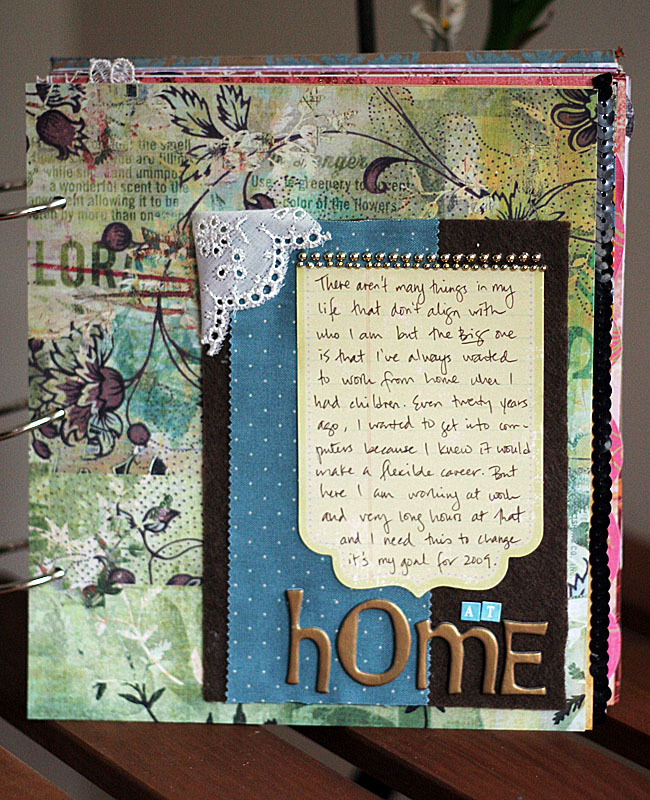 the smell
you are filling
while
a wonderful scent to the
allowing it to be
by more than one
greenery to
color of the flowers
There aren't many things in my
life that don't align with
who I am but the Big one
is that I've always wanted
to work from home when I
had children. Even twenty years
ago, I wanted to get into com-
puters because I knew it would
make a flexible career. But
here I am working at work
and very long hours at that
and I need this to change
it's my goal for 2009.
AT
hOmE